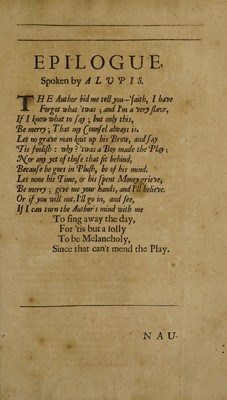 EPILOGUE,
Spoken by ALUPIS.
THE Author bid me tell you—'faith, I have
Forgot what 'twas; and I'm a very slave,
If I know what to say; but only this,
Be merry; That my Counsel always is.
Let no grave man knit up his Brow, and say
'Tis foolish: why? 'twas a Boy made the Play;
Nor any yet of those that sit behind,
Because he goes in Plush, be of his mind.
Let none his Time, or his spent Money grieve,
Be merry; give me your hands, and I'll believe.
Or if you will not, I'll go in, and see,
If I can turn the Author's mind with me
To sing away the day,
For 'tis but a folly
To be Melancholy,
Since that can't mend the Play.
NAU-